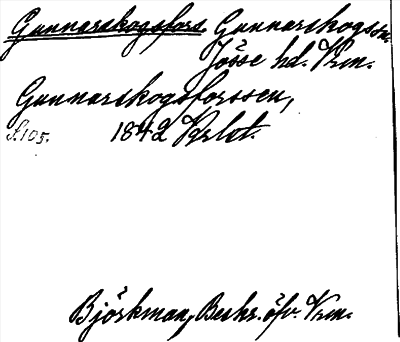 Gunnarskogsfors. Gunnarskogs sn.
Jösse hd. Vrm.
Gunnarskogsforssen,
S. 105. 1842
Björkman, Beskr. öfv. Vrm.